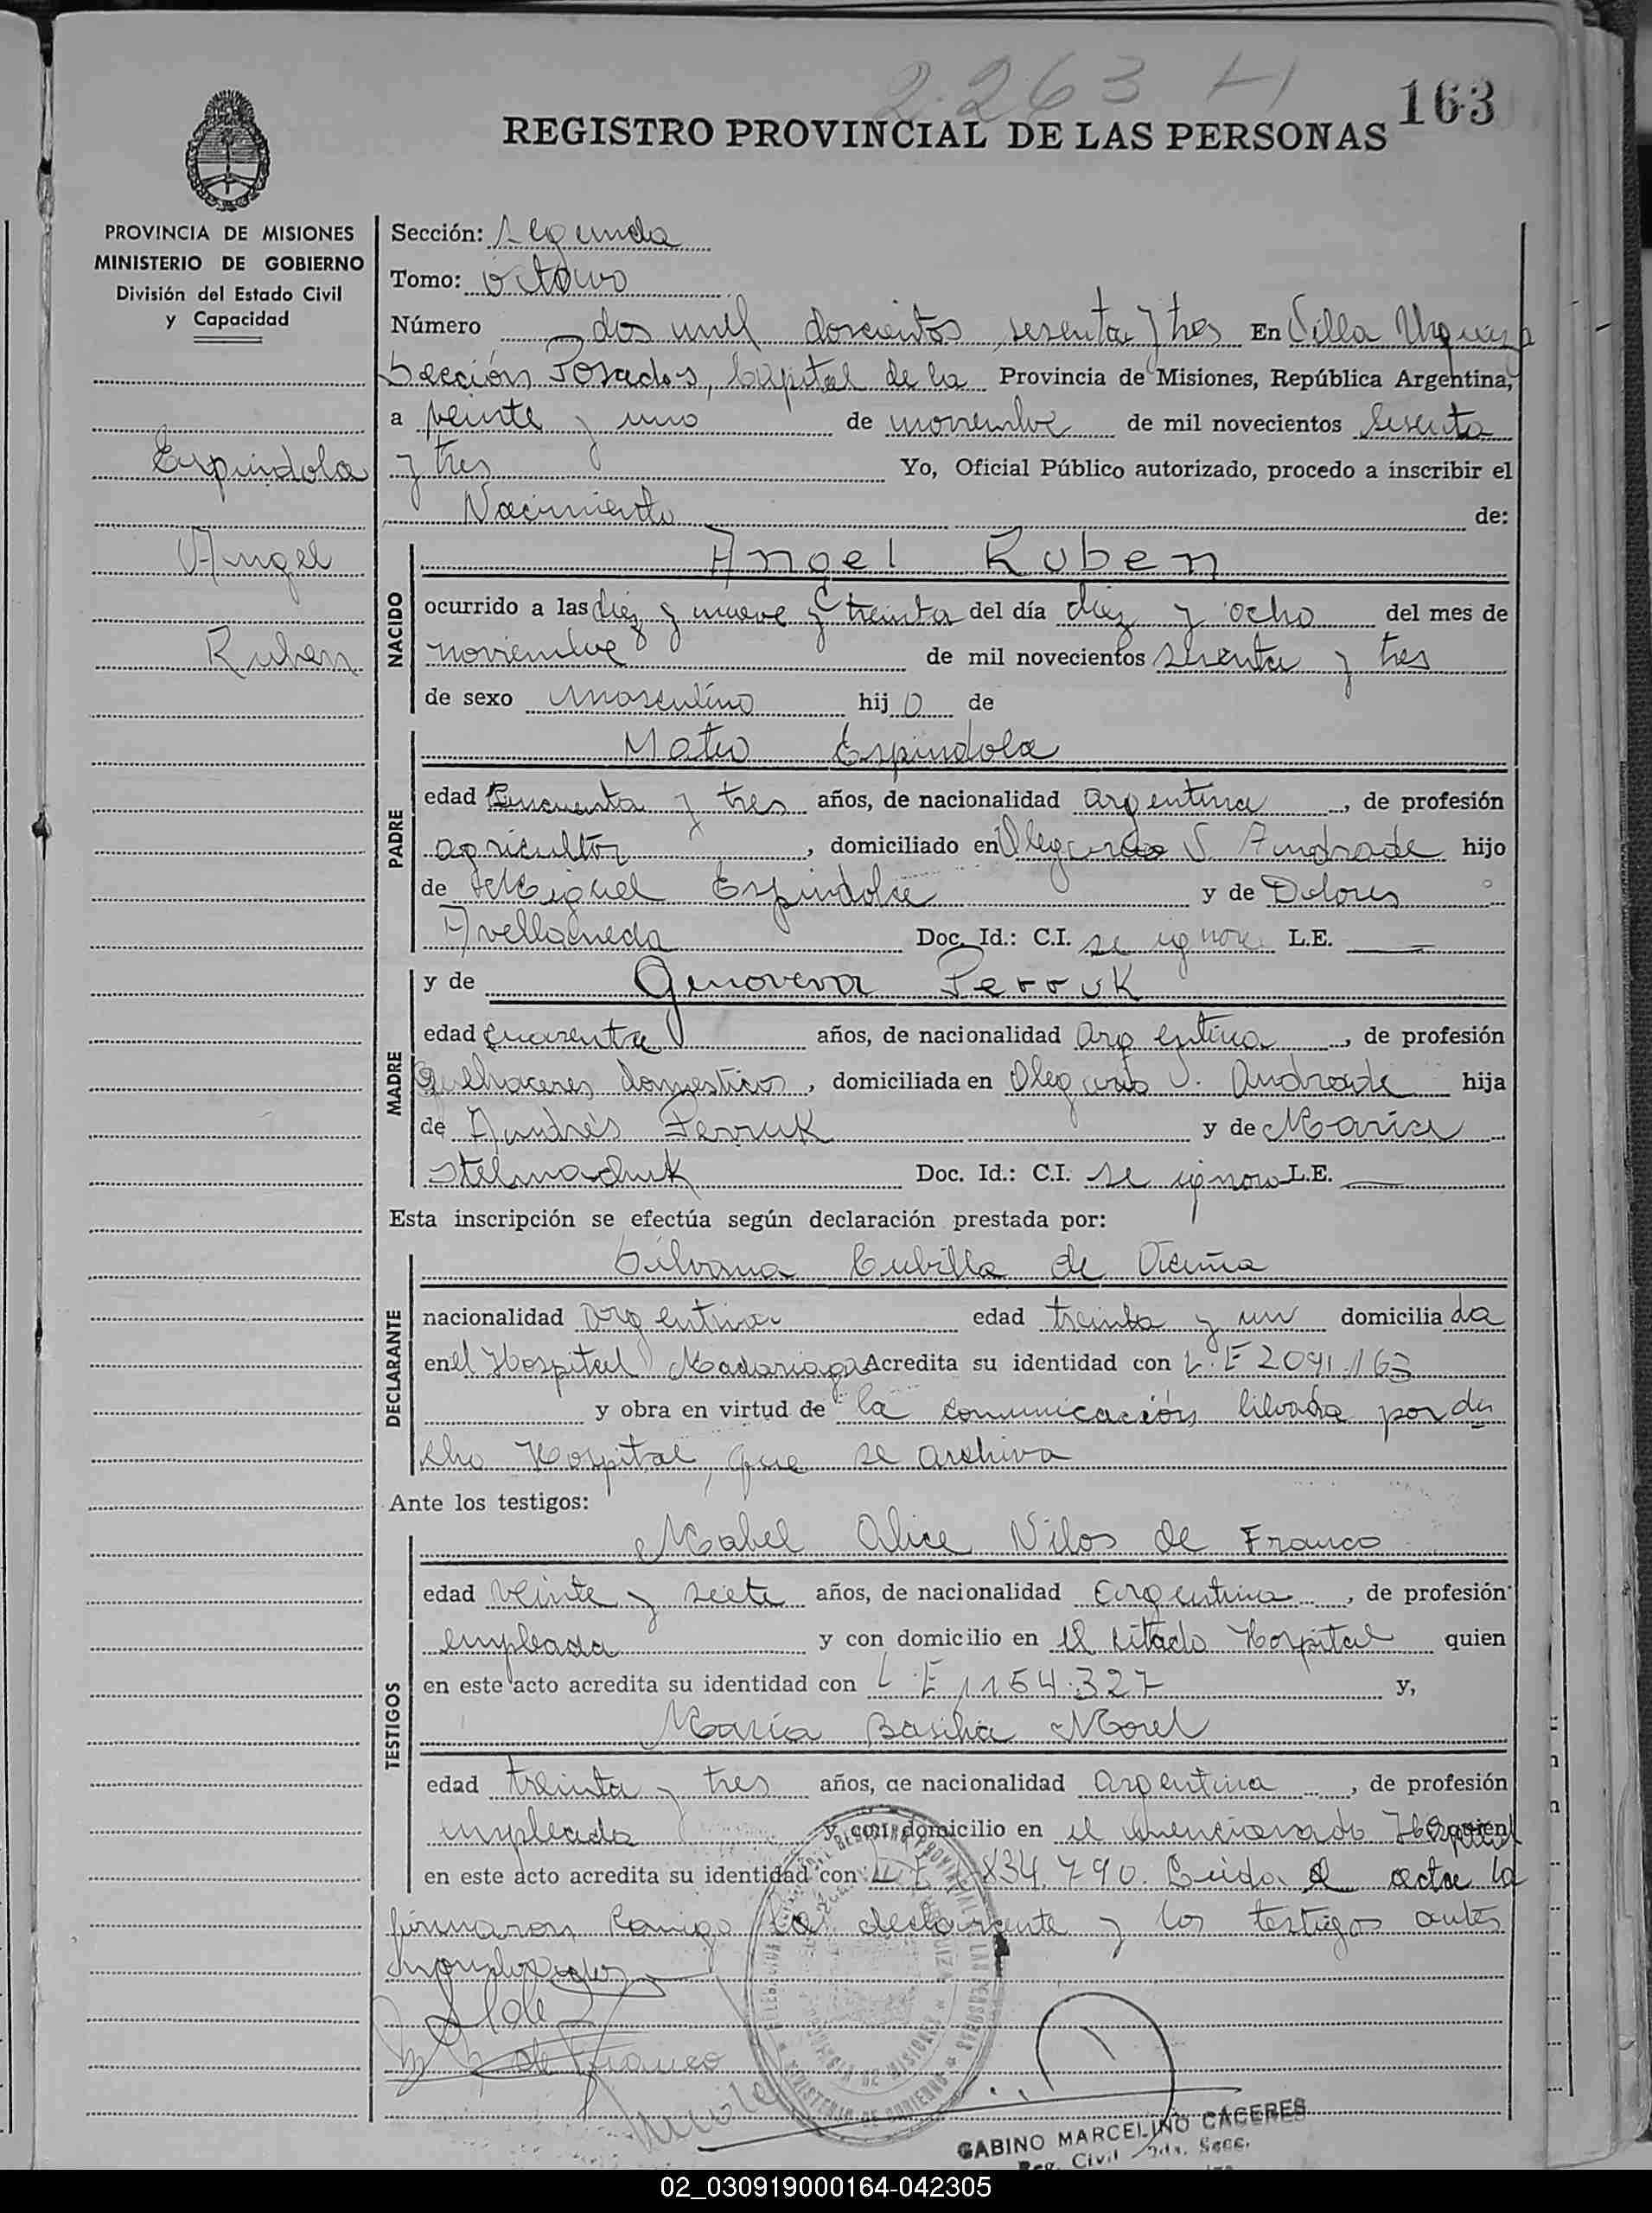 2.263 H
163
REGISTRO PROVINCIAL DE LAS PERSONAS
PROVINCIA DE MISIONES
MINISTERIO DE GOBIERNO
División del Estado Civil
y Capacidad
Espindola
Angel
Ruben
Sección: Segunda
Tomo: octavo
Número dos mil doscientos sesenta y tres En Villa Urquiza
Sección Posadas, Capital de la Provincia de Misiones, República Argentina,
a veinte y uno de noviembre de mil novecientos sesenta
y tres Yo, Oficial Público autorizado, procedo a inscribir el
Nacimiento de:
NACIDO
Angel Ruben
ocurrido a las diez y nueve y treinta del día diez y ocho del mes de
noviembre de mil novecientos sesenta y tres
de sexo masculino hijo de
PADRE
Mateo Espindola
edad Cincuenta y tres años, de nacionalidad argentina, de profesión
agricultor, domiciliado en Olegario V. Andrade hijo
de Miguel Espindola y de Dolores
Avellaneda Doc. Id.: C.I. se ignora L.E. —
MADRE
y de Genoveva Perruk
edad cuarenta años, de nacionalidad argentina, de profesión
Quehaceres domesticos, domiciliada en Olegario V. Andrade hija
de Andrés Perruk y de Maria
Stelmachuk Doc. Id.: C.I. se ignora L.E. —
Esta inscripción se efectúa según declaración prestada por:
DECLARANTE
Silvana Cubilla de Vicuña
nacionalidad argentina edad treinta y un domiciliada
en el Hospital Madariaga Acredita su identidad con L.E 2.091.163
y obra en virtud de la comunicación librada por di
cho Hospital, que se archiva
Ante los testigos:
TESTIGOS
Mabel Alice Nilos de Franco
edad veinte y siete años, de nacionalidad argentina, de profesión
empleada y con domicilio en el citado Hospital quien
en este acto acredita su identidad con L.E 1154.327 y,
María Basilia Morel
edad treinta y tres años, de nacionalidad argentina, de profesión
empleada y con domicilio en el mencionado Hospital quien
en este acto acredita su identidad con L.E 834.790. Leida el acta la
firmaron conmigo la declarante y los testigos antes
nombrados
de Franco
GABINO MARCELINO CACERES
Reg. Civil 2da. Secc.
02_030919000164-042305